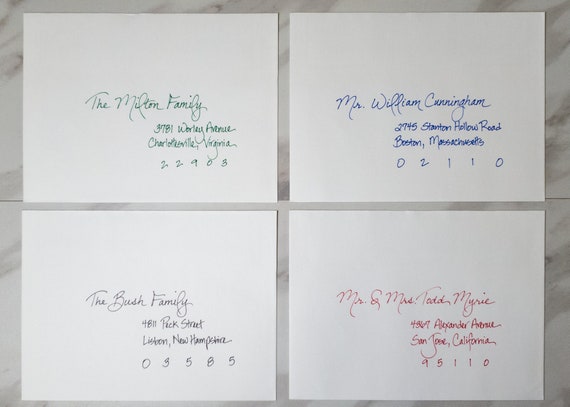 The Milton Family
3781 Worley Avenue
Charlottesville, Virginia
2 2 9 0 3
Mr. William Cunningham
2745 Stanton Hollow Road
Boston, Massachusetts
0 2 1 1 0
The Bush Family
4811 Peck Street
Lisbon, New Hampshire
0 3 5 8 5
Mr. & Mrs. Todd Myrie
4367 Alexander Avenue
San Jose, California
9 5 1 1 0